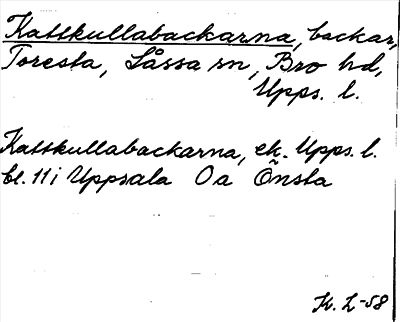 Kattkullabackarna, backar,
Toresta, Låssa sn, Bro hd,
Upps. l.
Kattkullabackarna, ek. Upps. l.
bl. 11 i Uppsala Oa Önsta
H. L-58